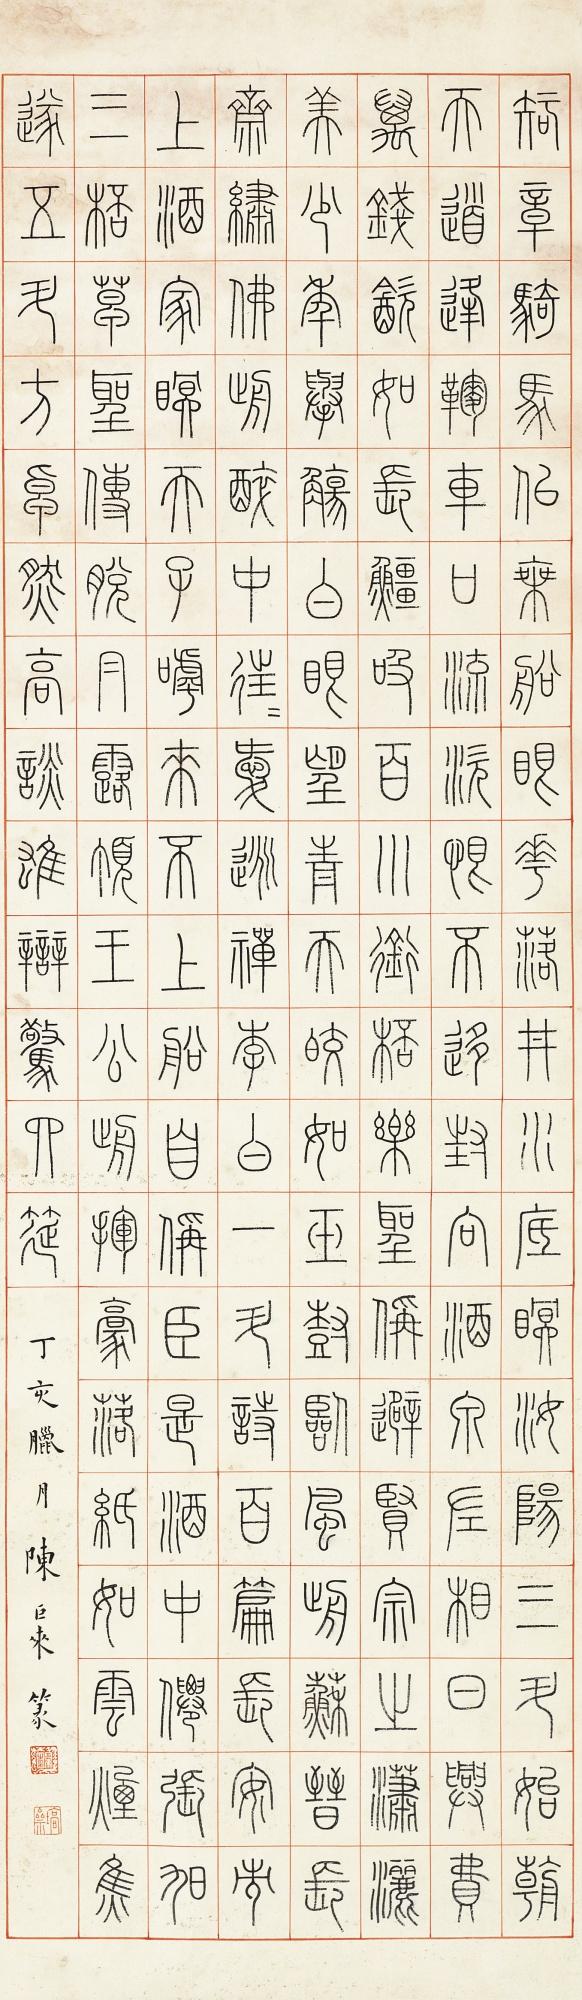 知章騎馬似乘船眼花落井水底眠汝陽三斗始朝
天道逢麴車口流涎恨不移封向酒泉左相日興費
萬錢飲如長鯨吸百川銜杯樂聖稱避賢宗之瀟灑
美少年舉觴白眼望青天皎如玉樹臨風前蘇晉長
齋繡佛前醉中往〻愛逃禪李白一斗詩百篇長安市
上酒家眠天子嘑來不上船自稱臣是酒中僊張旭
三杯草聖傳脫冃露頂王公前揮豪落紙如雲煙焦
遂五斗方卓然高談雄辯驚四筵
丁亥臘月陳巨來篆